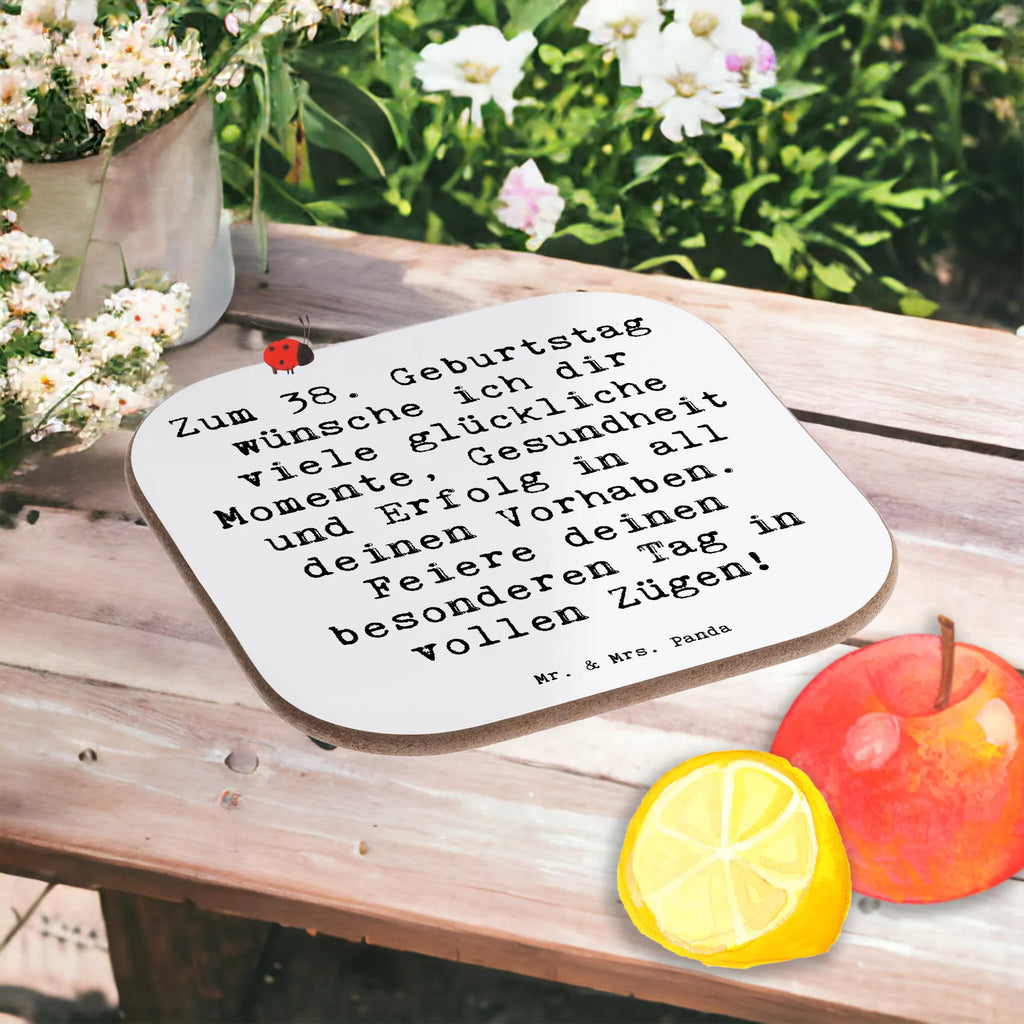 Zum 38. Geburtstag
wünsche ich dir
viele glückliche
Momente, Gesundheit
und Erfolg in all
deinen Vorhaben.
Feiere deinen
besonderen Tag in
vollen Zügen!
Mr. & Mrs. Panda